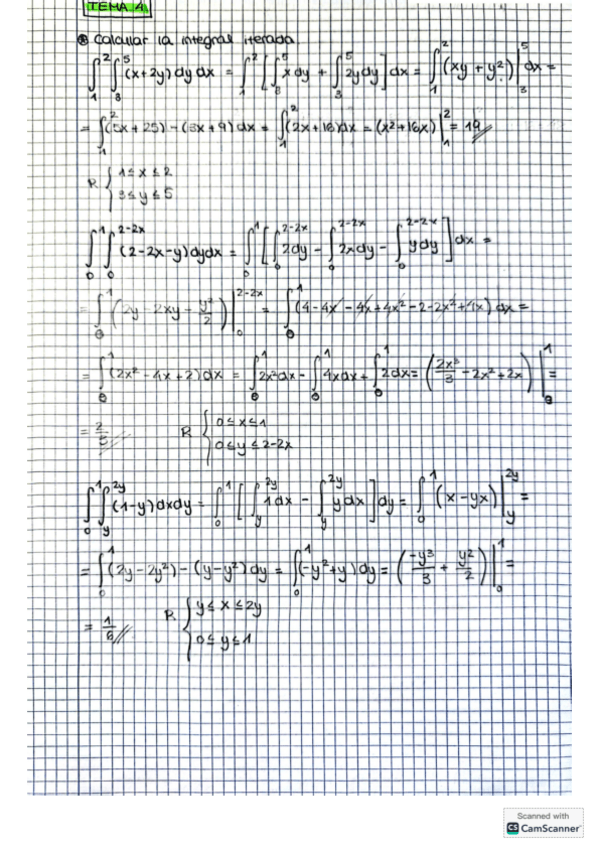 TEMA 4
⊛ Calcular la integral iterada.
∫₁² ∫₃⁵ (x+2y) dy dx = ∫₁² [∫₃⁵ x dy + ∫₃⁵ 2y dy] dx = ∫₁² (xy + y²)|₃⁵ dx =
= ∫₁² (5x + 25) - (3x + 9) dx = ∫₁² (2x + 16) dx = (x² + 16x)|₁² = 19
R { 1 ≤ x ≤ 2
3 ≤ y ≤ 5
∫₀¹ ∫₀^{2-2x} (2-2x-y) dy dx = ∫₀¹ [∫₀^{2-2x} 2dy - ∫₀^{2-2x} 2x dy - ∫₀^{2-2x} y dy] dx =
= ∫₀¹ (2y - 2xy - y²/2)|₀^{2-2x} = ∫₀¹ (4 - 4x - 4x + 4x² - 2 - 2x² + 4x) dx =
= ∫₀¹ (2x² - 4x + 2) dx = ∫₀¹ 2x² dx - ∫₀¹ 4x dx + ∫₀¹ 2 dx = (2x³/3 - 2x² + 2x)|₀¹ =
= 2/3 R { 0 ≤ x ≤ 1
0 ≤ y ≤ 2-2x
∫₀¹ ∫_y^{2y} (1-y) dx dy = ∫₀¹ [∫_y^{2y} 1 dx - ∫_y^{2y} y dx] dy = ∫₀¹ (x - yx)|_y^{2y} =
= ∫₀¹ (2y - 2y²) - (y - y²) dy = ∫₀¹ (-y² + y) dy = (-y³/3 + y²/2)|₀¹ =
= 1/6 R { y ≤ x ≤ 2y
0 ≤ y ≤ 1
Scanned with
CS CamScanner